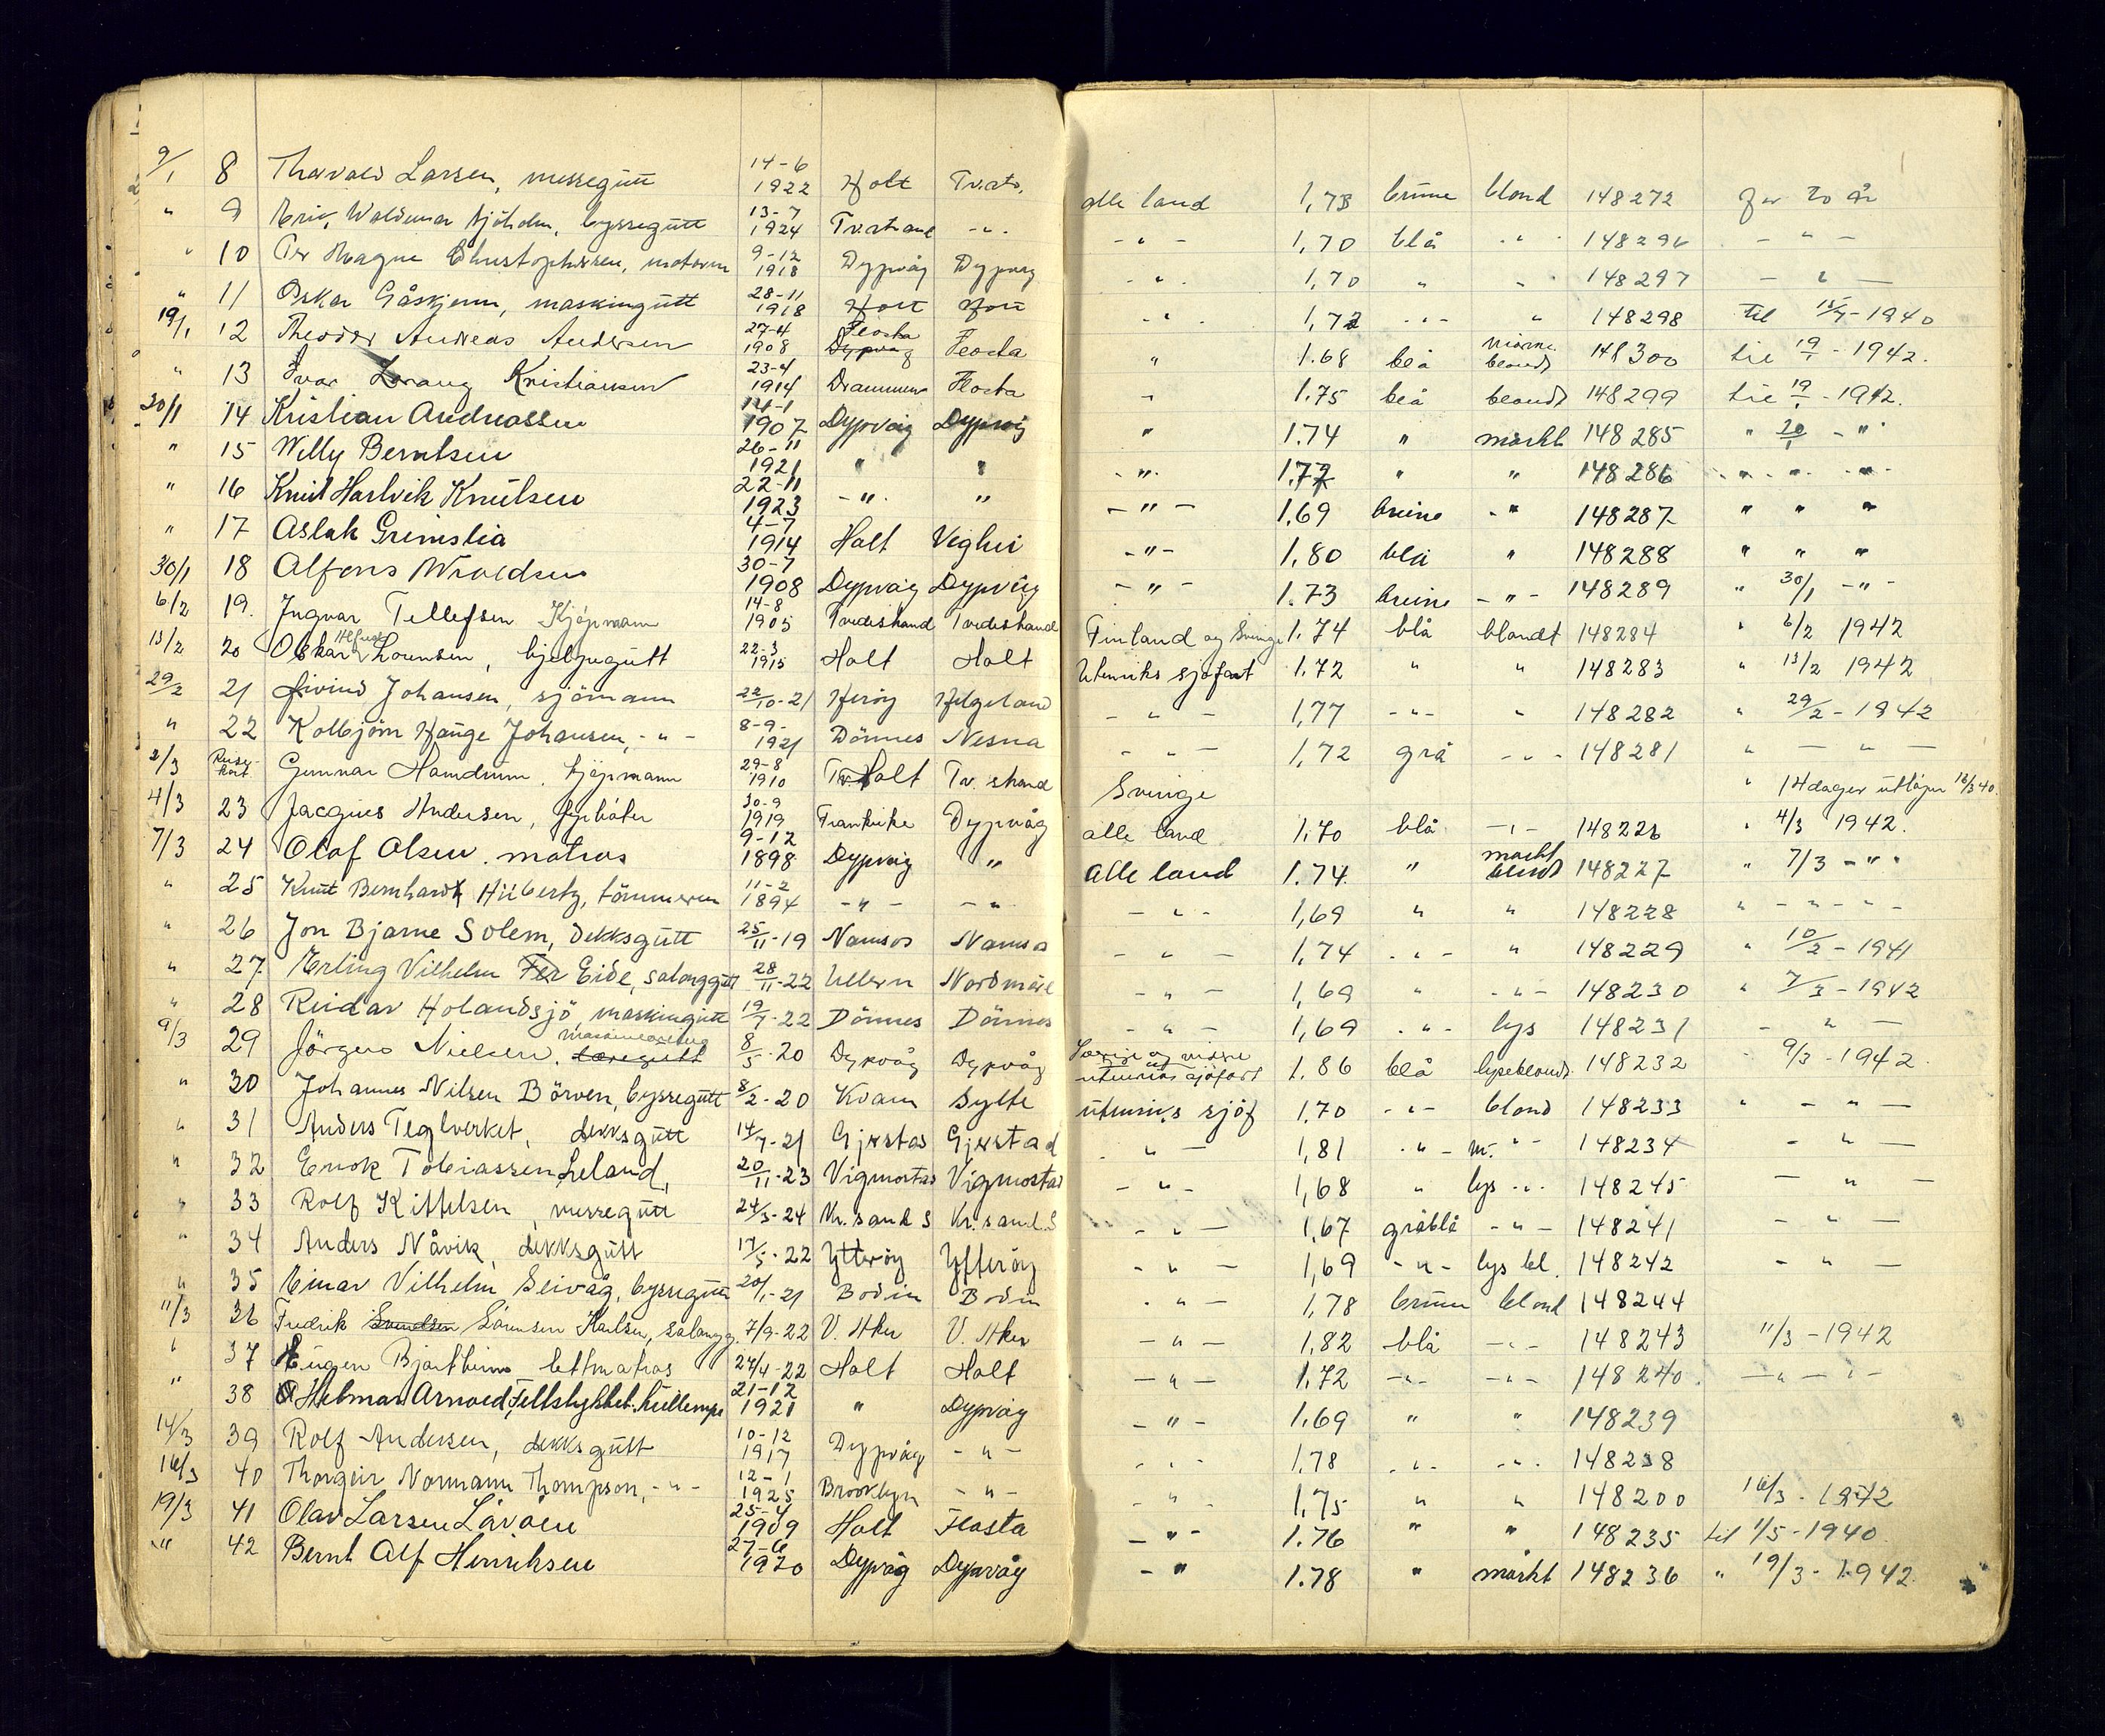 9/1 8 Thorvald Larsen, messegutt 14-6 1922 Holt Tv.str. alle land 1,73 brune blond 148272 for to år
" 9 Eric Waldemar Sjöholm, byssegutt 13-7 1924 Tv.strand -"- -"- 1,70 blå -"- 148296 -"-
" 10 Per Magne Christophersen, matorm 9-12 1918 Dypvåg Dypvåg -"- 1,70 " " 148297 -"-
" 11 Oskar Gåskjenn, maskingutt 28-11 1918 Holt Holt -"- 1,72 -"- " 148298 til 15/4-1940
19/1 12 Theodor Andreas Andersen 27-4 1908 Flosta Dypvåg Flosta " 1.68 blå blondt 148300 til 19/1-1942.
" 13 Ivar Lorang Kristiansen 23-4 1914 Drammen Flosta " 1.75 blå blondt 148299 til 19/1-1942.
30/1 14 Kristian Andreassen 14-1 1907 Dypvåg Dypvåg " 1.74 " mørkt 148285 " 30/1 -"-
" 15 Willy Berntsen 26-11 1921 " " -"- 1.77 " " 148286 " -"- -"-
" 16 Knut Hartvik Knutsen 22-11 1923 -"- " -"- 1.69 brune -"- 148287 " " "
" 17 Aslak Grimslia 4-7 1914 Holt Veghei -"- 1.80 blå " 148288 " " "
30/1 18 Alfons Wroldsen 30-7 1908 Dypvåg Dypvåg -"- 1.73 brune -"- 148289 " 30/1 -"-
6/2 19. Ingvar Tellefsen Kjöpmann 14-8 1905 Tvedestrand Tvedestrand Finland og Sverige 1.74 blå blondt 148284 " 6/2 1942
13/2 20 Oskar Alfred Lorensen, hjelpegutt 22-3 1915 Holt Holt Utenriks sjøfart 1.72 " " 148283 " 13/2 1942
29/2 21 Eivind Johansen, sjömann 22/10-21 Heröy Helgeland -"- 1,77 -"- " 148282 " 29/2-1942
" 22 Kolbjörn Hauge Johansen, -"- 8-9-1921 Dönnes Nesna -"- 1,72 grå -"- 148281 " -"-
2/3 Reisekort Gunnar Hamdrum, kjöpmann 29-8 1910 Holt Tv.strand Sverige " 14 dager utløper 16/3 40.
4/3 23 Jacques Andersen, fyrböter 30-9 1919 Frankrike Dypvåg alle land 1,70 blå -"- 148226 " 4/3 1942.
7/3 24 Olaf Olsen, matros 9-12 1898 Dypvåg " alle land 1.74. " mørkt blondt 148227 " 7/3 -"-
" 25 Knut Bernhardt Hübertz, tömmerm 11-2 1894 -"- -"- -"- 1,69 " " 148228 " -"-
" 26 Jon Bjarne Solem, dekksgutt 25/11-19 Namsos Namsos -"- 1,74 -"- " 148229 " 10/2-1941
" 27 Erling Vilhelm Eide, salonggutt 28/11-22 Ullern Nordmöre -"- 1,69 " -"- 148230 " 7/3-1942
" 28 Reidar Holandsjö, maskingutt 19/7-22 Dönnes Dönnes -"- 1,69 -"- lys 148231 -"-
9/3 29 Jörgen Nielsen, læregutt 8/5-20 Dypvåg Dypvåg Sverige og videre utenriks sjöfart 1.86 blå lyseblondt 148232 " 9/3-1942
" 30 Johannes Nilsen Börven, byssegutt 8/2-20 Kvam Sylte utenriks sjöf 1,70 -"- blond 148233 " -"-
" 31 Anders Teglverket, dekksgutt 14/7-21 Gjerstad Gjerstad -"- 1,81 -"- m. -"- 148234 -"-
" 32 Enok Tobiassen Leland, 20/11-23 Vigmostad Vigmostad -"- 1,68 " lys -"- 148245 -"-
" 33 Rolf Kittelsen, messegutt 24/3-24 Kr.sand S Kr.sand.S -"- 1,67 gråblå -"- 148241 -"-
" 34 Anders Nåvik, dekksgutt 17/5-22 Ytteröy Ytteröy -"- 1,69 -"- lys bl. 148242 -"-
" 35 Einar Vilhelm Seivåg, byssegutt 20/1-21 Bodin Bodin -"- 1,78 brune blond 148244
11/3 36 Fredrik Svendsen Sörensen Karlsen, salongg. 7/9-22 V. Aker V. Aker -"- 1,82 blå -"- 148243 11/3-1942
" 37 Eugen Bjortheim lettmatros 24/4-22 Holt Holt -"- 1.72 -"- -"- 148240. -"-
" 38 Helmar Arnold Feltstykket, kullemper 21-12 1921 " Dypvåg -"- 1.69 " " 148239
14/3 39 Rolf Andersen, dekksgutt 10-12 1917 Dypvåg -"- -"- 1,78 -"- -"- 148238
16/3 40 Thorgeir Normann Thompson, -"- 12-1 1925 Brooklyn -"- -"- 1,75 " " 148200 16/3-1942
19/3 41 Olav Larsen Låvåen 25-4 1909 Holt Flosta -"- 1.76 " " 148235 til 1/5-1940
" 42 Bernt Alf Henriksen 27-6 1920 Dypvåg Dypvåg -" 1.78 " mørkt 148236 " 19/3-1942.